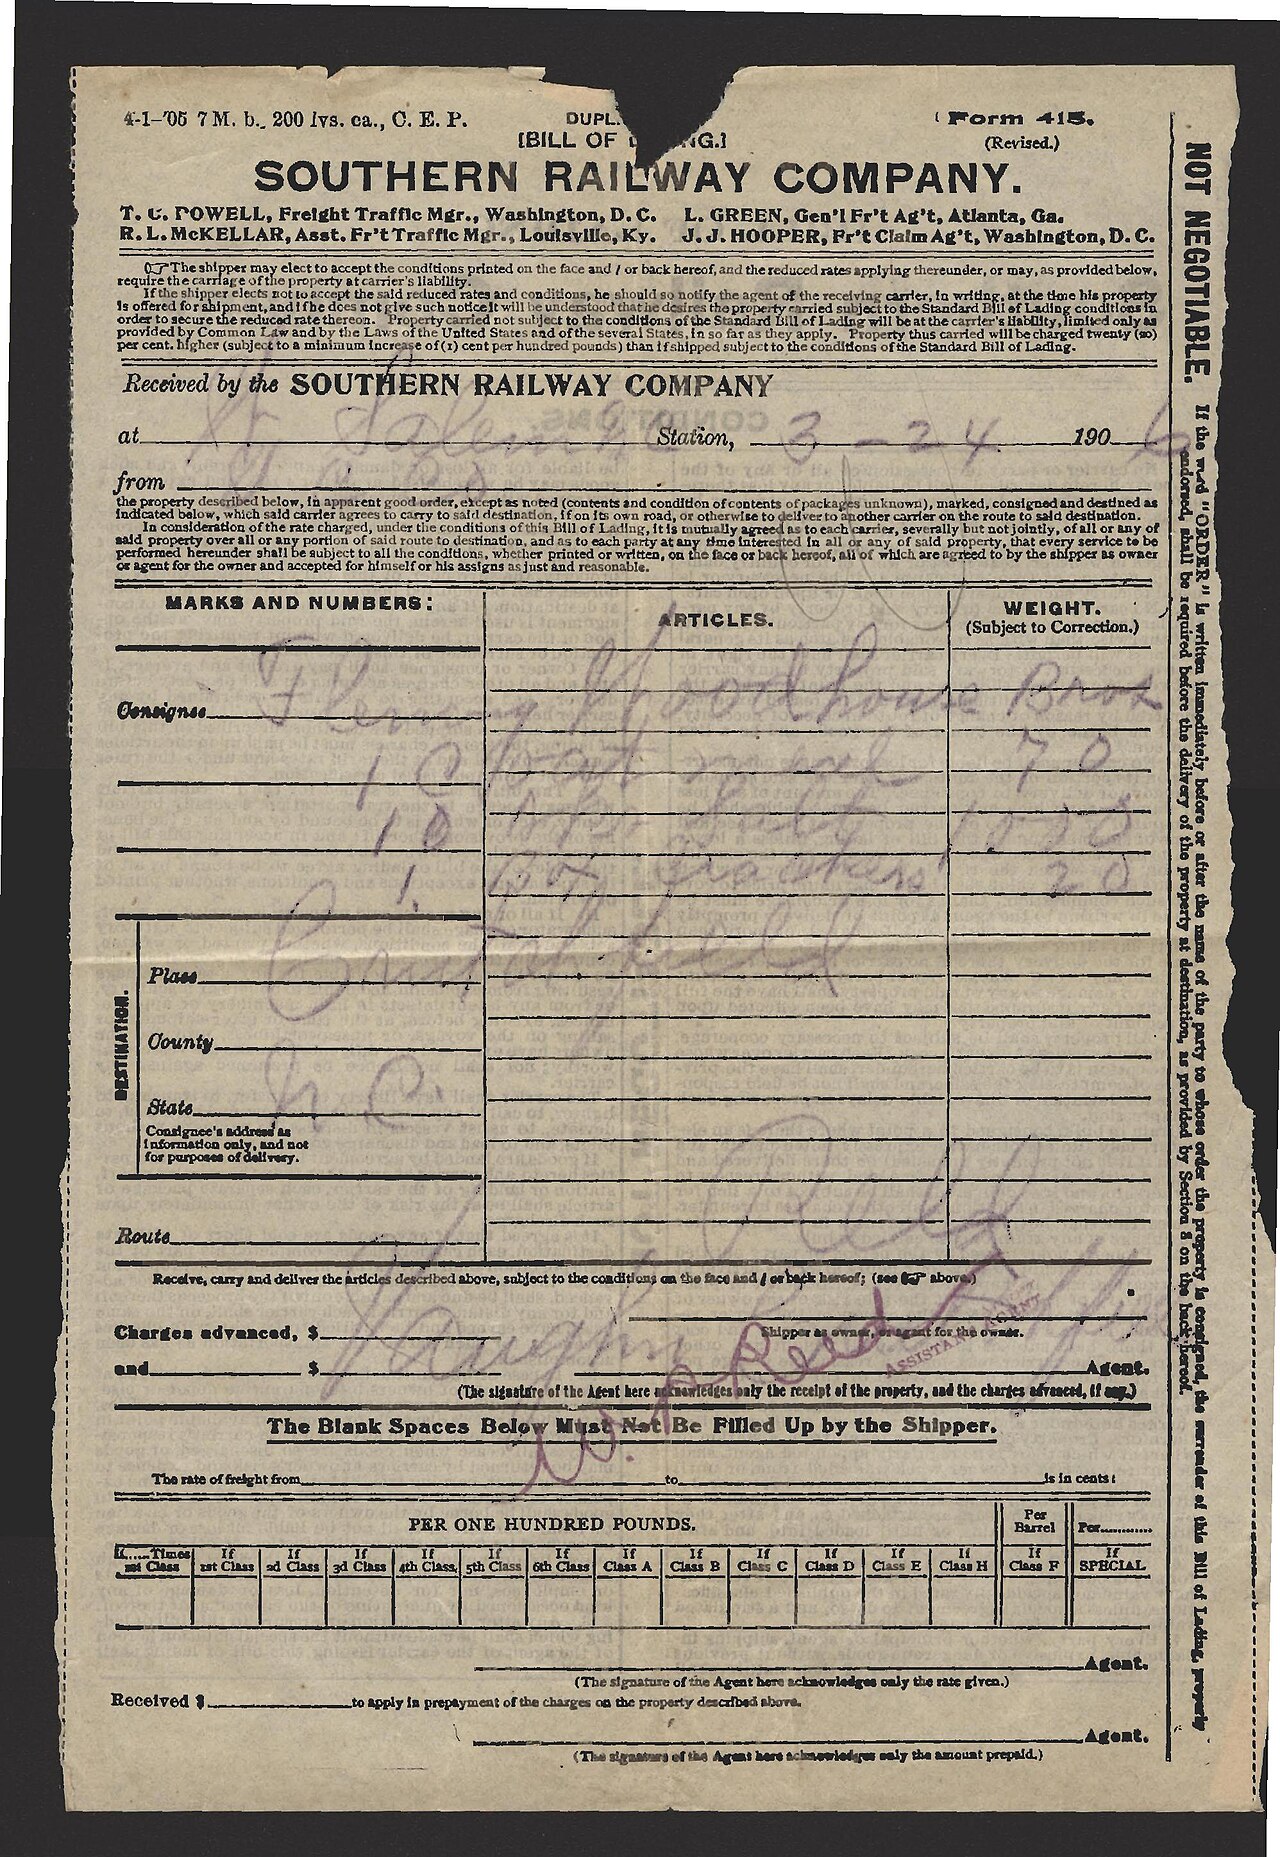 4-1-'05 7 M. b. 200 lvs. ca., C. E. P.
DUPL
Form 415.
[BILL OF NG.]
(Revised.)
SOUTHERN RAILWAY COMPANY.
T. C. POWELL, Freight Traffic Mgr., Washington, D. C. L. GREEN, Gen'l Fr't Ag't, Atlanta, Ga.
R. L. McKELLAR, Asst. Fr't Traffic Mgr., Louisville, Ky. J. J. HOOPER, Fr't Claim Ag't, Washington, D. C.
☞ The shipper may elect to accept the conditions printed on the face and / or back hereof, and the reduced rates applying thereunder, or may, as provided below,
require the carriage of the property at carrier's liability.
If the shipper elects not to accept the said reduced rates and conditions, he should so notify the agent of the receiving carrier, in writing, at the time his property
is offered for shipment, and if he does not give such notice it will be understood that he desires the property carried subject to the Standard Bill of Lading conditions in
order to secure the reduced rate thereon. Property carried not subject to the conditions of the Standard Bill of Lading will be at the carrier's liability, limited only as
provided by Common Law and by the Laws of the United States and of the several States, in so far as they apply. Property thus carried will be charged twenty (20)
per cent. higher (subject to a minimum increase of (1) cent per hundred pounds) than if shipped subject to the conditions of the Standard Bill of Lading.
Received by the SOUTHERN RAILWAY COMPANY
at W Salem N C Station, 3 - 24 190 6
from
the property described below, in apparent good order, except as noted (contents and condition of contents of packages unknown), marked, consigned and destined as
indicated below, which said carrier agrees to carry to said destination, if on its own road, or otherwise to deliver to another carrier on the route to said destination.
In consideration of the rate charged, under the conditions of this Bill of Lading, it is mutually agreed as to each carrier, severally but not jointly, of all or any of
said property over all or any portion of said route to destination, and as to each party at any time interested in all or any of said property, that every service to be
performed hereunder shall be subject to all the conditions, whether printed or written, on the face or back hereof, all of which are agreed to by the shipper as owner
or agent for the owner and accepted for himself or his assigns as just and reasonable.
MARKS AND NUMBERS:
ARTICLES.
WEIGHT.
(Subject to Correction.)
Consignee Woodhouse Bros
1 C meal 70
10 Salt
1 Box Crackers 20
DESTINATION.
Place Crutchfield
County
State N C
Consignee's address as
information only, and not
for purposes of delivery.
Route
Receive, carry and deliver the articles described above, subject to the conditions on the face and / or back hereof; (see ☞ above.)
Charges advanced, $
Shipper as owner, or agent for the owner.
Vaughn
W. A. Reed
ASSISTANT AGENT
and $ Agent.
(The signature of the Agent here acknowledges only the receipt of the property, and the charges advanced, if any.)
The Blank Spaces Below Must Not Be Filled Up by the Shipper.
The rate of freight from to is in cents:
PER ONE HUNDRED POUNDS.
Per Barrel
Per
Times 1st Class
If 1st Class
If 2d Class
If 3d Class
If 4th Class
If 5th Class
If 6th Class
If Class A
If Class B
If Class C
If Class D
If Class E
If Class H
If Class F
If SPECIAL
Agent.
(The signature of the Agent here acknowledges only the rate given.)
Received $ to apply in prepayment of the charges on the property described above.
Agent.
(The signature of the Agent here acknowledges only the amount prepaid.)
NOT NEGOTIABLE. If the word "ORDER" is written immediately before or after the name of the party to whose order the property is consigned, the surrender of this Bill of Lading, properly
endorsed, shall be required before the delivery of the property at destination, as provided by Section 8 on the back hereof.